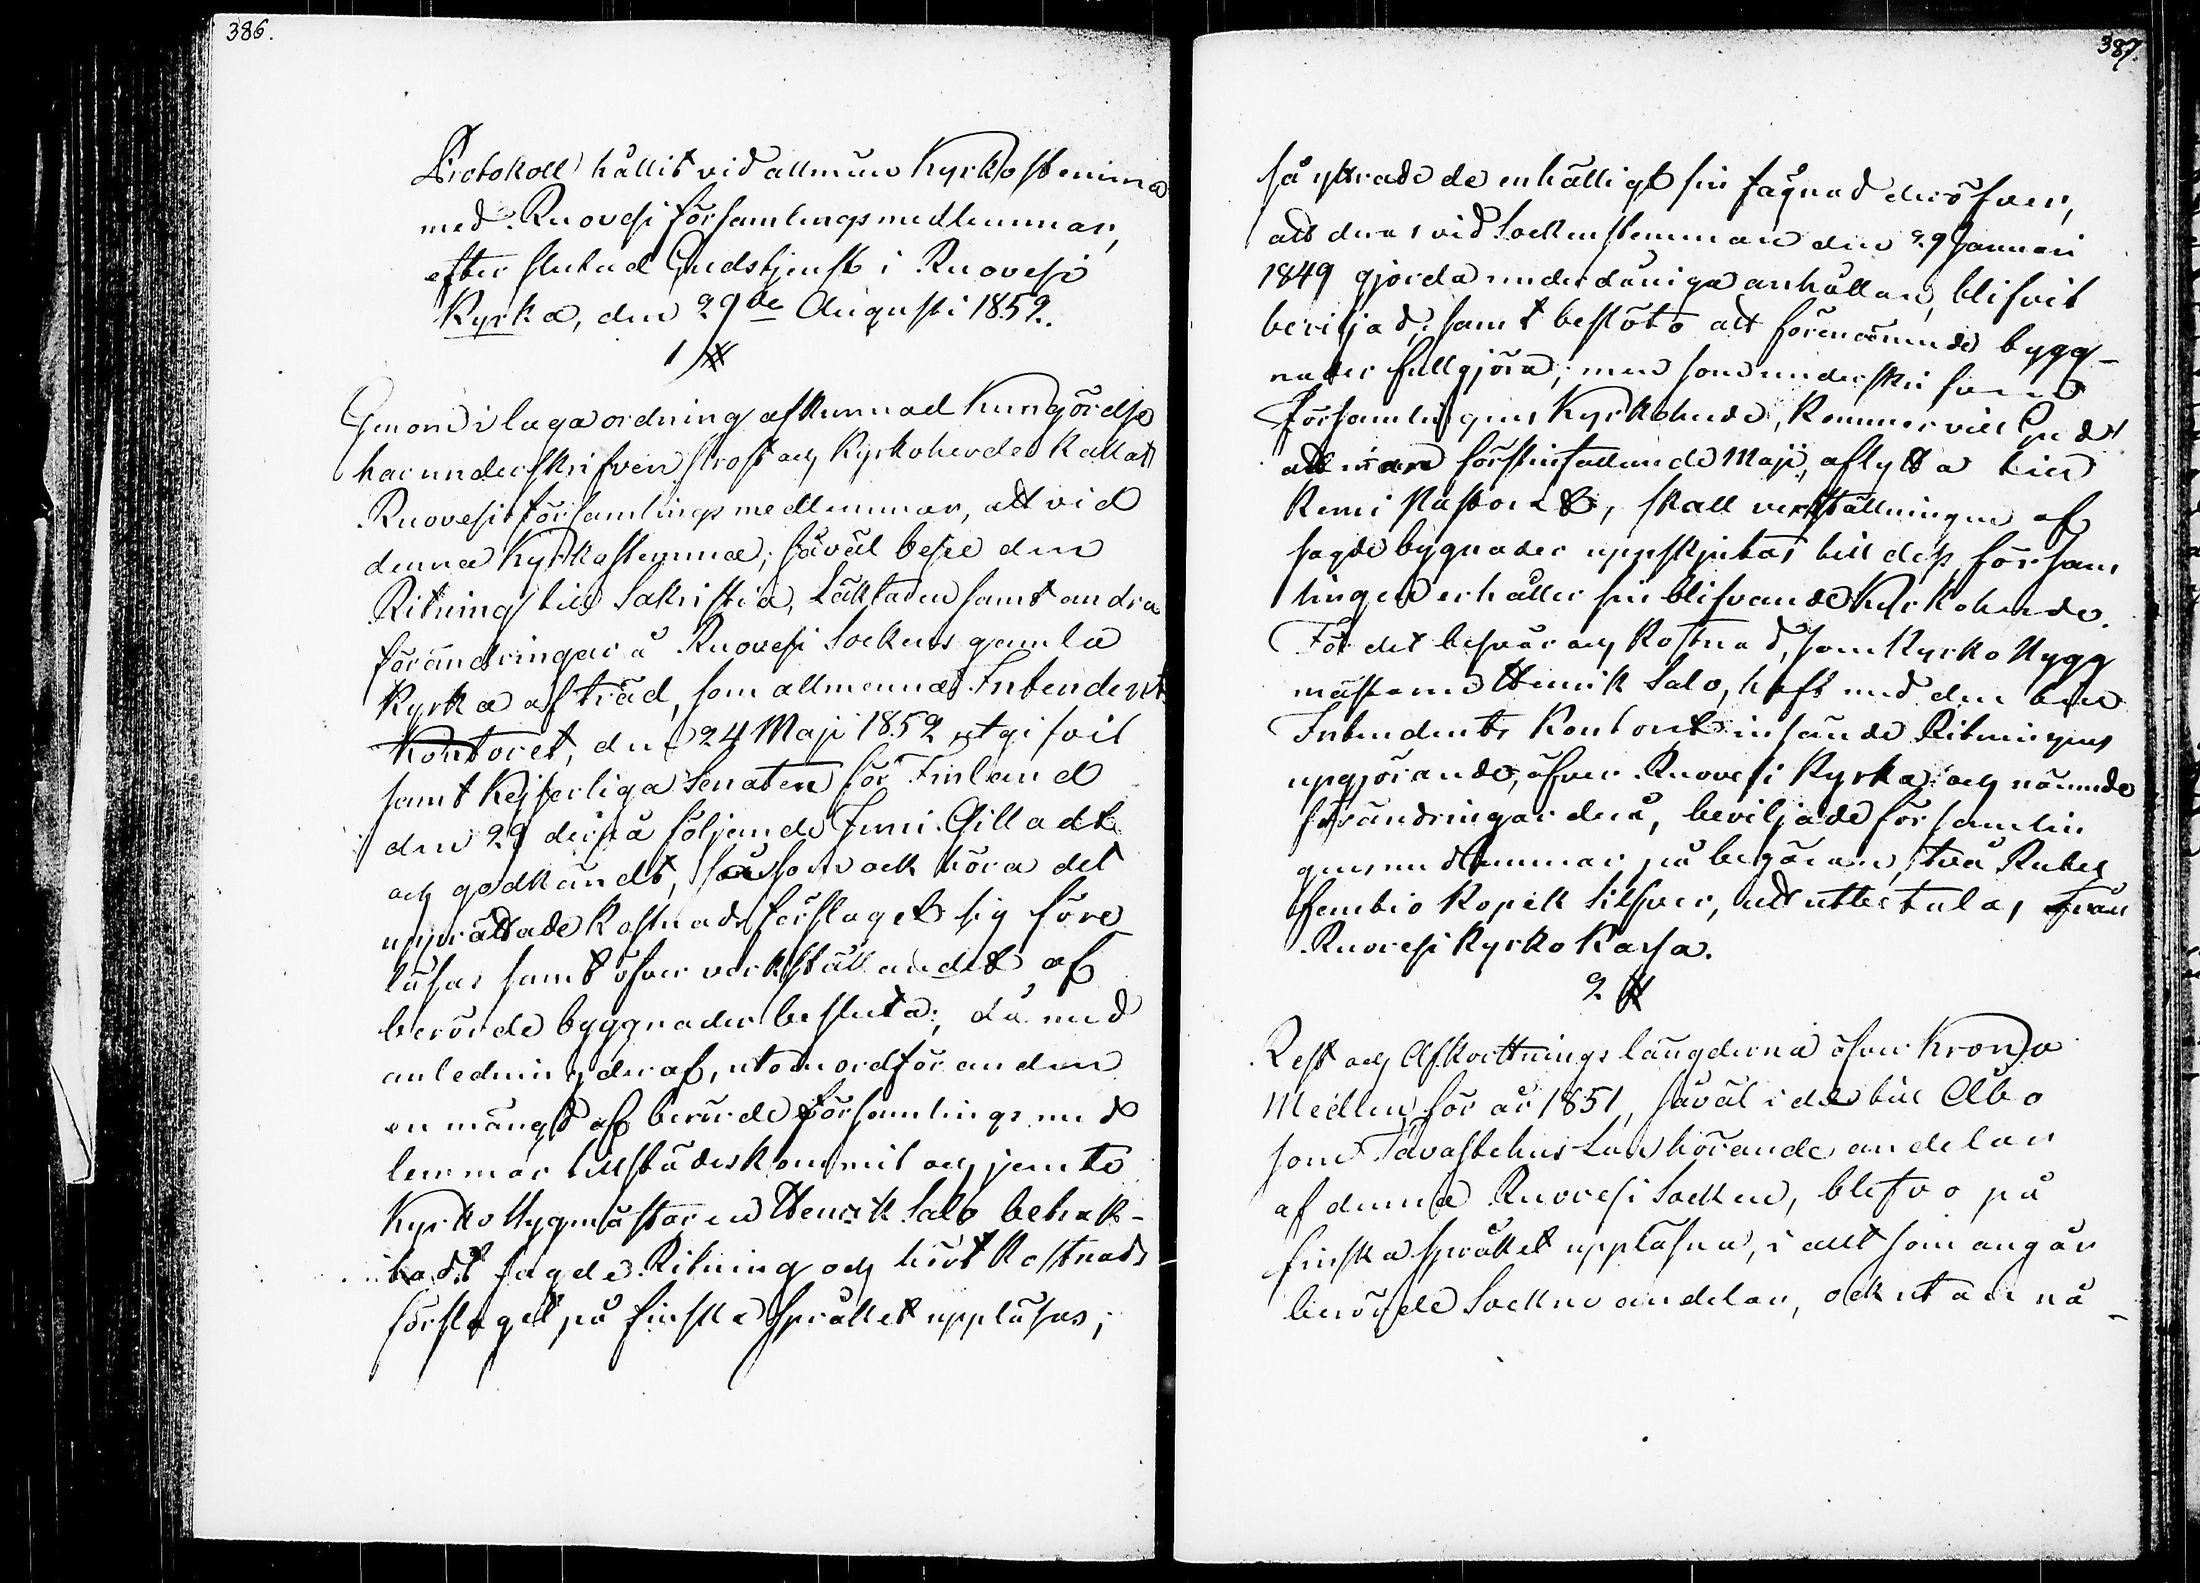 386.
Protokoll hållit vid allmän Kyrkostämma
med Ruovesi församlingsmedlemmar,
efter slutad Gudstjenst i Ruovesi
Kyrka, den 29de Augusti 1852.
1 §
Genom i laga ordning afkunnad kungörelse
har underskrifven Prost och Kyrkoherde kallat
Ruovesi församlings medlemmar, att vid
denna Kyrkostemma, såväl bese den
Ritning till Sakristia, Läktaren samt andra
förändringar å Ruovesi Sockens gamla
Kyrka af träd, som allmenna Intendents
Kontoret, den 24 Maji 1852 utgifvit
samt Kejserliga Senaten för Finland
den 29 derpå följande Juni Gilladt
och godkändt, såsom ock höra det
upprättade Kostnads förslaget sig före
läsas samt öfver verkställandet af
berörde byggnader besluta; då med
anledning deraf, utom ordföranden
en mängd af berörde församlings med
lemmar tillstädeskommit och jemte
Kyrko Byggmästaren Henrik Salo betrak-
tadt sagde Ritning och hört Kostnads
förslaget på finska språket uppläsas,
387.
så yttrade de enhälligt sin fägnad deröfver,
att deras vid Sockenstemman den 29 Januari
1849 gjorda underdåniga anhållan, blifvit
beviljad, samt beslöto att förenämnde bygg-
nader fullgjöra; men som underskrifvand
församlingens Kyrkoherde, kommer vill Gud
att innan förstinfallande Maji, aflytta till
Kemi Pastorat, skall verkställningen af
sagde bygnader uppskjutas till dess försam
lingen erhåller sin blifvande Kyrkoherde.
För det besvär och kostnad, som Kyrko Bygg
mästaren Henrik Salo, haft med den till
Intendents Kontoret insände Ritningens
upgjörande, öfver Ruovesi Kyrka och nämnde
förändringar derå, beviljade församlin
gens medlemmar på begäran, två Rubel
femtio Kopek Silfver, att uttbetalas från
Ruovesi Kyrko Kassa.
2 §
Rest och Afkortnings längderna öfver Krono
Medlen för år 1851, såväl i de till Åbo
som Tavastehus Län hörande andelar
af denna Ruovesi Socken, blefvo på
finska språket upplästa, i allt som angår
berörde Sockne andelar, ock utan nå-